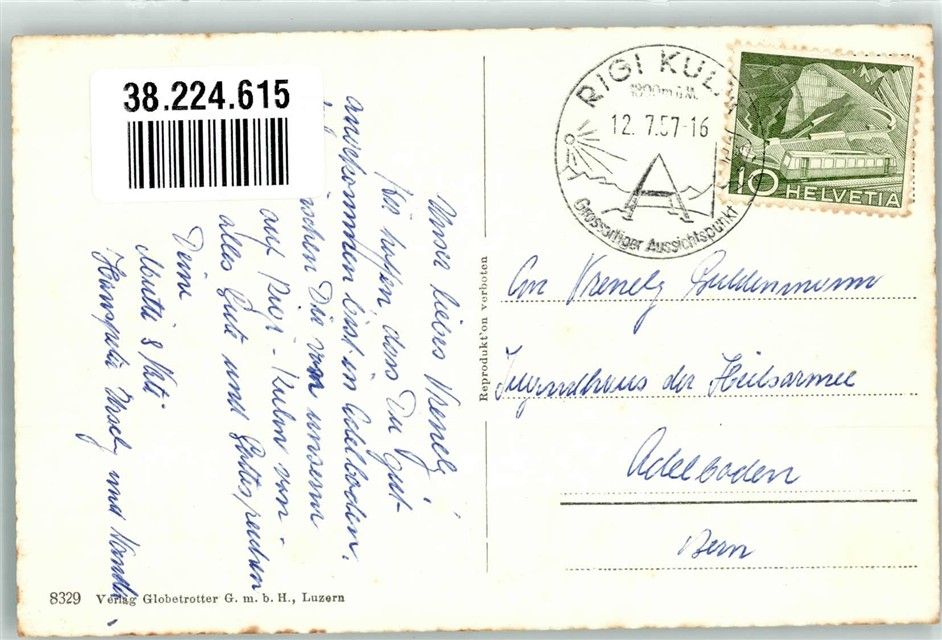 38.224.615
Unser liebes Vreneli,
Wir hoffen dass Du gut
angekommen bist in Adelboden.
Dir von unserm
auf Rigi-Kulm von
alles Gute und Gottes
Deine
Mutti & Vati
Hanspeter Ursely und
8329 Verlag Globetrotter G. m. b. H., Luzern
Reprodukt'on verboten
RIGI KUL
1800m ü.M.
12. 7.57-16
Grossartiger Aussichtspunkt
10 HELVETIA
An Vrenely
Jugendhaus der Heilsarmee
Adelboden
Bern